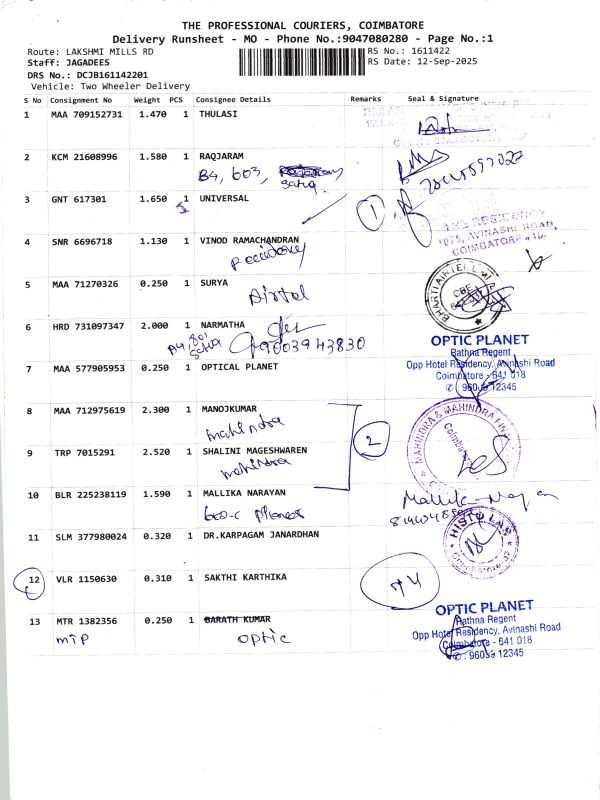 THE PROFESSIONAL COURIERS, COIMBATORE
Delivery Runsheet - MO - Phone No.:9047080280 - Page No.:1
Route: LAKSHMI MILLS RD
RS No.: 1611422
Staff: JAGADEES
RS Date: 12-Sep-2025
DRS No.: DCJB161142201
Vehicle: Two Wheeler Delivery
S No Consignment No Weight PCS Consignee Details Remarks Seal & Signature
1 MAA 709152731 1.470 1 THULASI
THULASI
2 KCM 21608996 1.580 1 RAQJARAM
B4, 603,
3 GNT 617301 1.650 1 UNIVERSAL
1
RESIDENCY
1075, AVINASHI ROAD,
COIMBATORE
4 SNR 6696718 1.130 1 VINOD RAMACHANDRAN
5 MAA 71270326 0.250 1 SURYA
Airtel
BHARTI AIRTEL
CBE
6 HRD 731097347 2.000 1 NARMATHA
9003943830
OPTIC PLANET
Rathna Regent
Opp Hotel Residency, Avinashi Road
Coimbatore - 641 018
96039 12345
7 MAA 577905953 0.250 1 OPTICAL PLANET
8 MAA 712975619 2.300 1 MANOJKUMAR
mahindra
2
MAHINDRA & MAHINDRA FIN
Coimbatore
9 TRP 7015291 2.520 1 SHALINI MAGESHWAREN
mahindra
10 BLR 225238119 1.590 1 MALLIKA NARAYAN
Mallika Narayan
11 SLM 377980024 0.320 1 DR.KARPAGAM JANARDHAN
HISTO LAB
12 VLR 1150630 0.310 1 SAKTHI KARTHIKA
74
13 MTR 1382356 0.250 1 BARATH KUMAR
MTP optic
OPTIC PLANET
Rathna Regent
Opp Hotel Residency, Avinashi Road
Coimbatore - 641 018
96039 12345